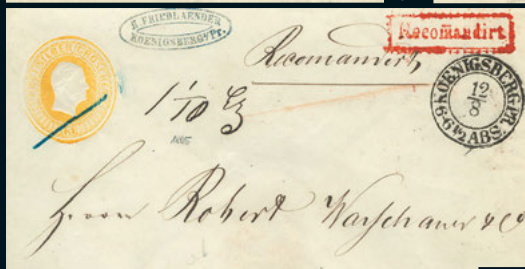 E. FRIEDLAENDER
KOENIGSBERG i/Pr.
Recomandirt
Recomandirt,
KOENIGSBERG PR.
12
8
ABS.
1 1/10
Herrn Robert Warschauer & Co